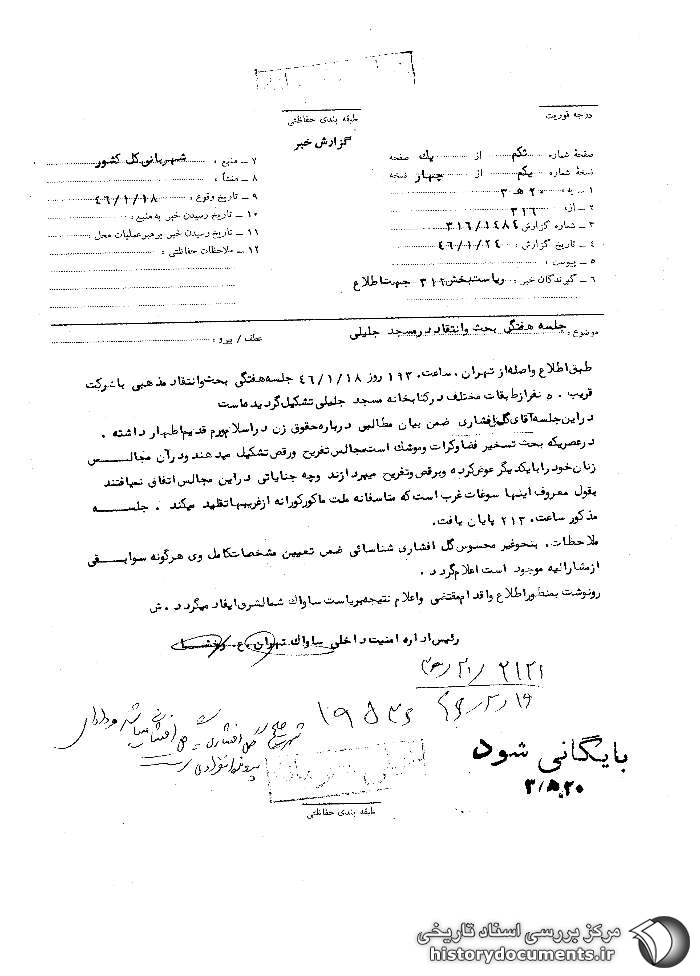 درجه فوریت
طبقه بندی حفاظتی
گزارش خبر
صفحه شماره یکم از یک صفحه
نسخه شماره یکم از چهار نسخه
۱ ـ به ۲۰ ه‍ ۳
۲ ـ از ۳۱۶
۳ ـ شماره گزارش ۳۱۶/۱۴۸۴
۴ ـ تاریخ گزارش ۴۶/۱/۲۴
۵ ـ پیوست :
۶ ـ گیرندگان خبر : ریاست بخش ۳۱۲ جهت اطلاع
۷ ـ منبع : شهربانی کل کشور
۸ ـ منشأ :
۹ ـ تاریخ وقوع : ۴۶/۱/۱۸
۱۰ ـ تاریخ رسیدن خبر به منبع :
۱۱ ـ تاریخ رسیدن خبر برهبر عملیات محل :
۱۲ ـ ملاحظات حفاظتی :
موضوع : جلسه هفتگی بحث وانتقاد در مسجد جلیلی
عطف / پیرو :
طبق اطلاع واصله از تهران . ساعت ۱۹۳۰ روز ۴۶/۱/۱۸ جلسه هفتگی بحث وانتقاد مذهبی با شرکت
قریب ۵۰ نفر از طبقات مختلف در کتابخانه مسجد جلیلی تشکیل گردیده است
در این جلسه آقای گل افشاری ضمن بیان مطالبی درباره حقوق زن در اسلام ورم قدیم اظهار داشته .
در عصریکه بحث تسخیر فضا وکرات وموشک است مجالس تفریح ورقص تشکیل میدهند ودر آن مجالس
زنان خود را با یکدیگر عوض کرده وبرقص وتفریح میپردازند وچه جنایاتی در این مجالس اتفاق نمیافتند
بقول معروف اینها سوغات غرب است که متاسفانه ملت ما کورکورانه از غربیها تقلید میکند . جلسه
مذکور ساعت ۲۱۳۰ پایان یافت.
ملاحظات . بنحو غیر محسوس گل افشاری شناسائی ضمن تعیین مشخصات کامل وی هرگونه سوابقی
از مشارالیه موجود است اعلام گردد .
رونوشت بمنظور اطلاع واقدام مقتضی واعلام نتیجه بریاست ساواک شمالشرق ایفاد میگردد . ش
رئیس اداره امنیت داخلی ساواک تهران . ع .
۲۱۲۱
۱۹۵۳۶
بایگانی شود
۳/۵.۲۰
طبقه بندی حفاظتی
مرکز بررسی اسناد تاریخی
historydocuments.ir